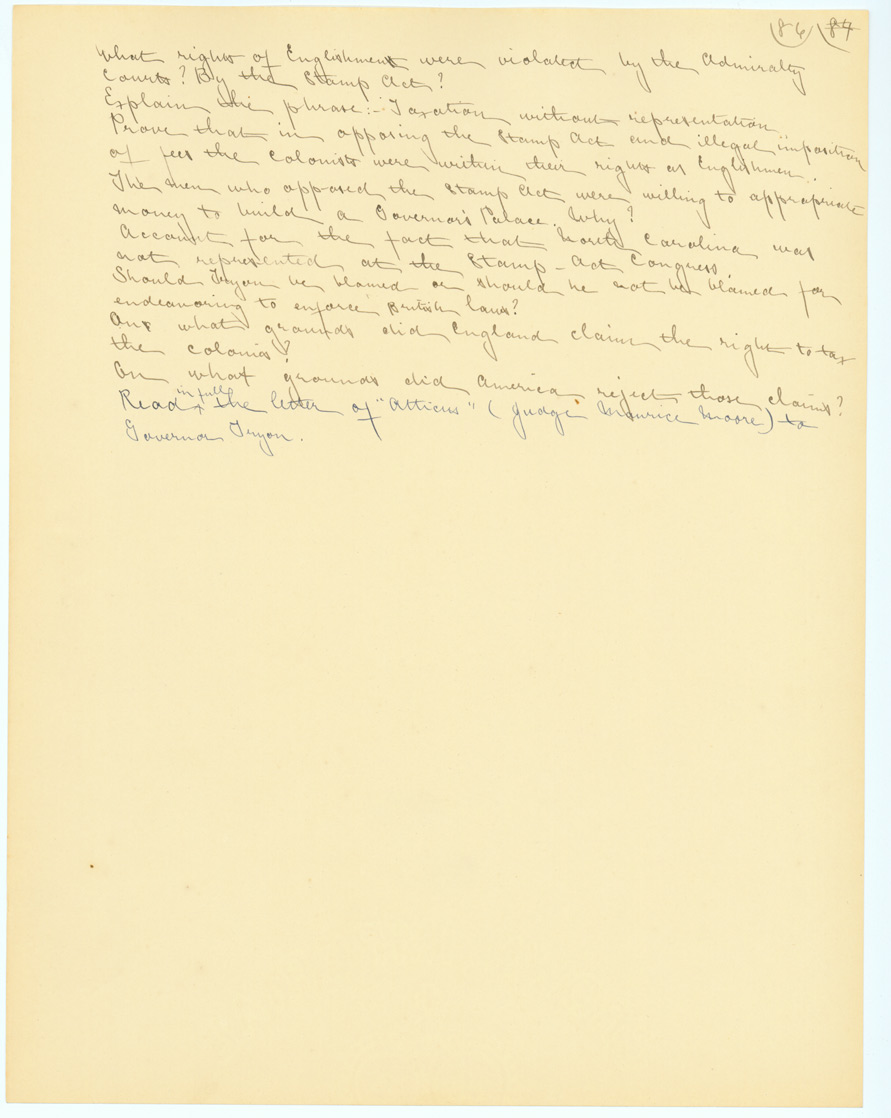 86 87
What rights of Englishmen were violated by the Admiralty
Courts? By the Stamp Act?
Explain the phrase:- "Taxation without representation"
Prove that in opposing the Stamp Act and illegal imposition
of fees the colonists were within their rights as Englishmen.
The men who opposed the Stamp Act were willing to appropriate
money to build a Governor's Palace. Why?
Account for the fact that North Carolina was
not represented at the Stamp-Act Congress.
Should Tryon be blamed or should he not be blamed for
endeavoring to enforce British laws?
On what grounds did England claim the right to tax
the colonies?
On what grounds did America reject those claims?
Read in full the letter of "Atticus" (Judge Maurice Moore) to
Governor Tryon.